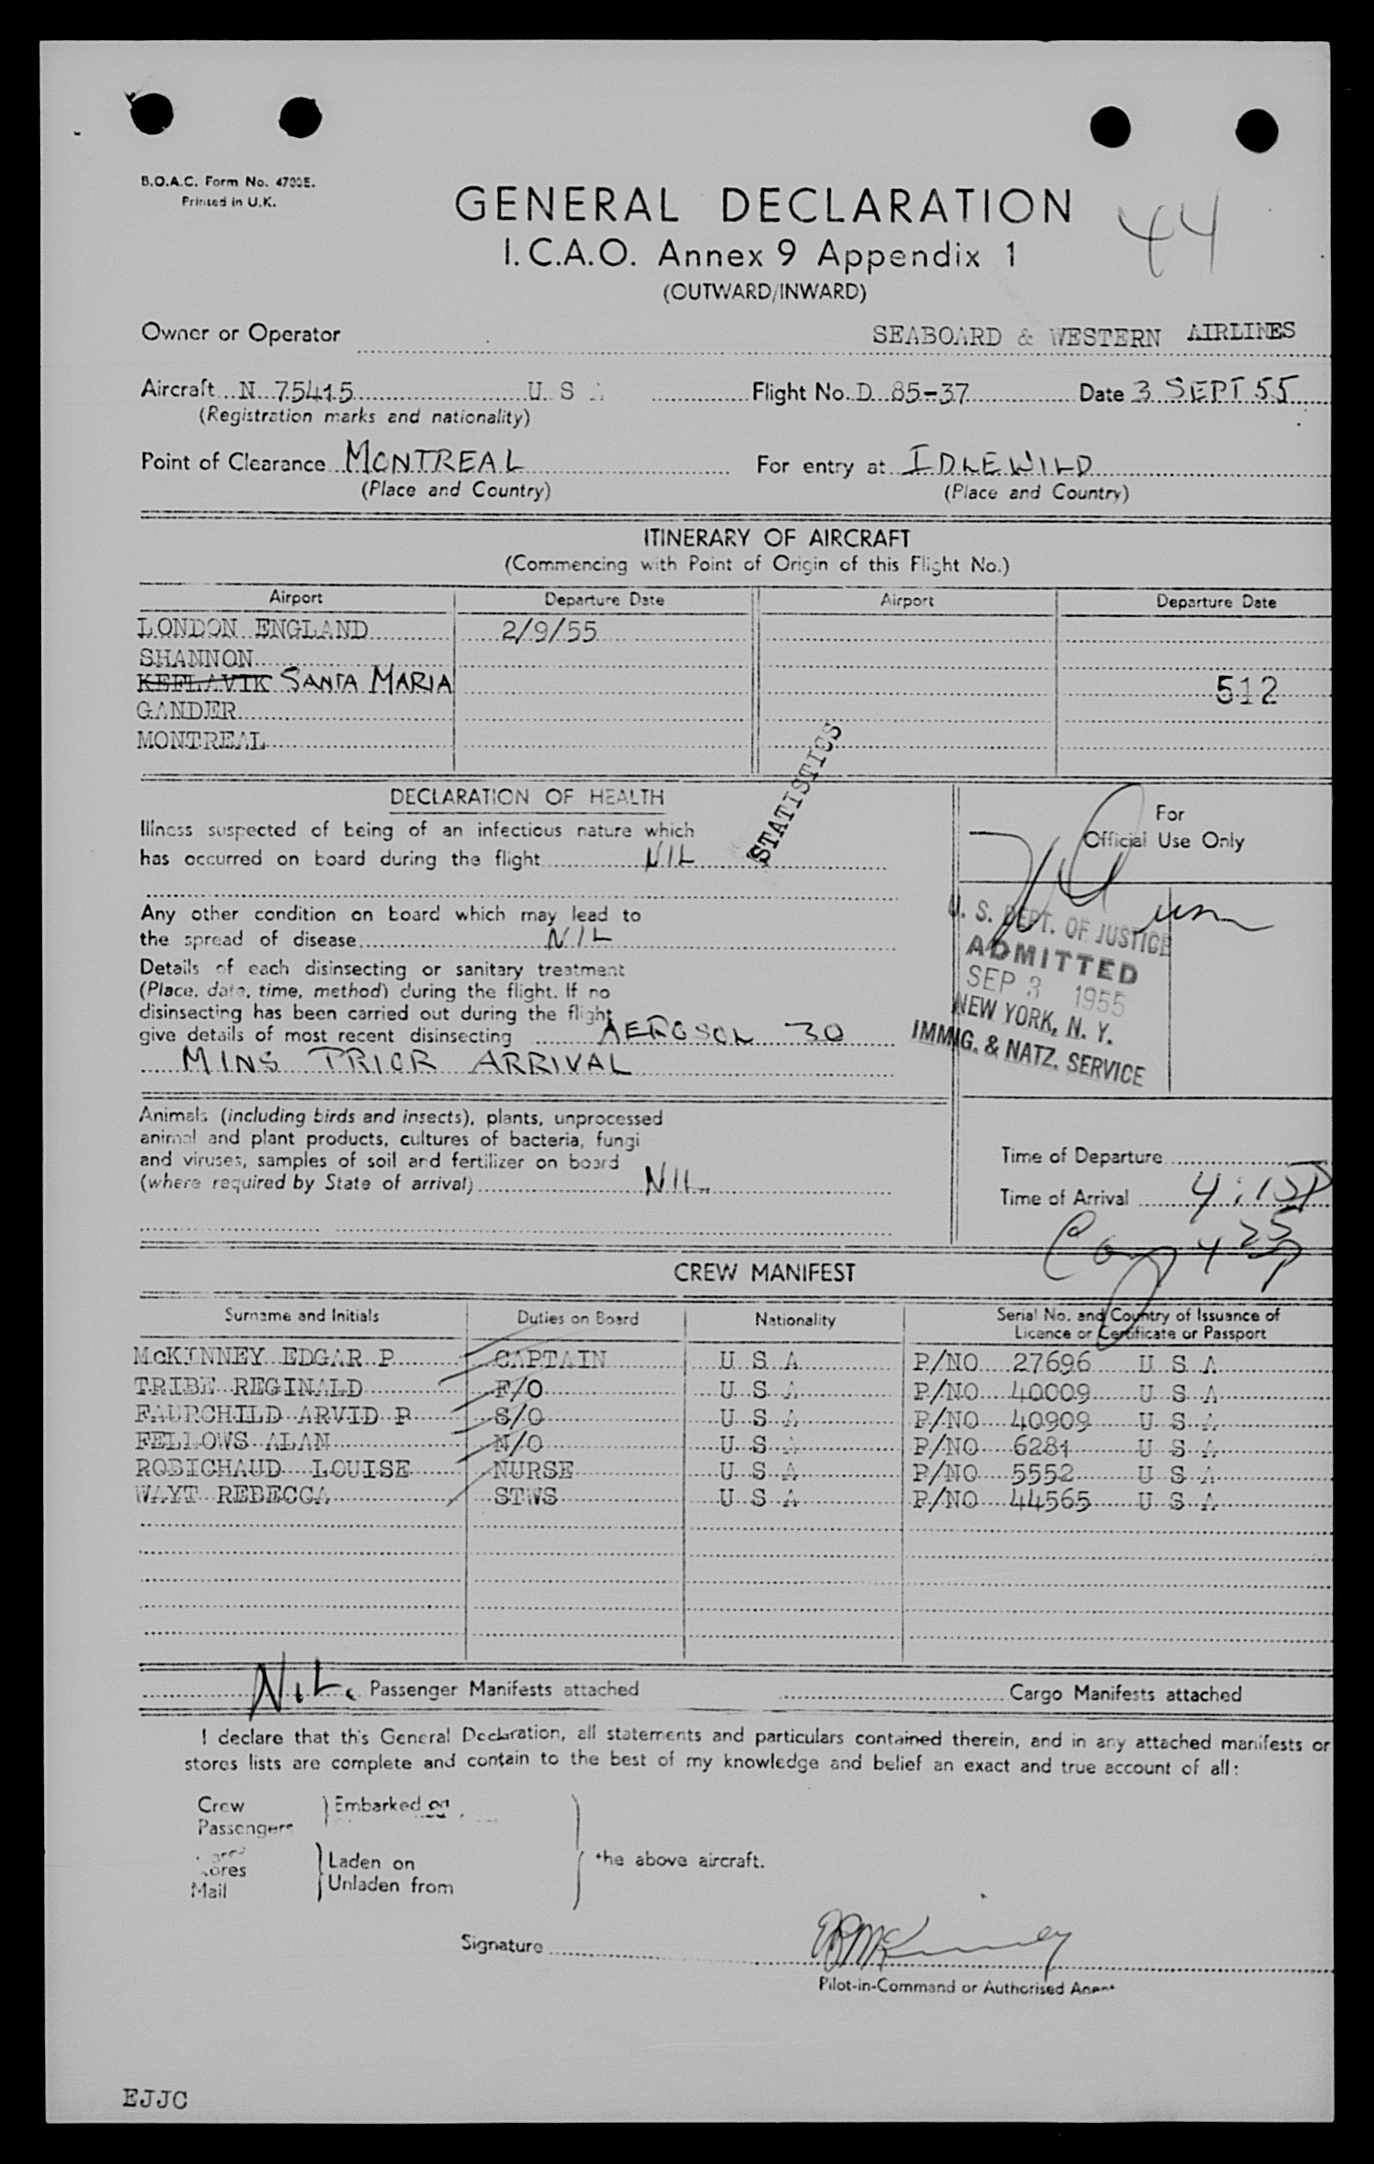 B.O.A.C. Form No. 4700E.
Printed in U.K.
GENERAL DECLARATION
44
I.C.A.O. Annex 9 Appendix 1
(OUTWARD/INWARD)
Owner or Operator SEABOARD & WESTERN AIRLINES
Aircraft N 75415 U S A Flight No. D 85-37 Date 3 SEPT 55
(Registration marks and nationality)
Point of Clearance MONTREAL For entry at IDLEWILD
(Place and Country) (Place and Country)
ITINERARY OF AIRCRAFT
(Commencing with Point of Origin of this Flight No.)
Airport Departure Date Airport Departure Date
LONDON ENGLAND 2/9/55
SHANNON
KEFLAVIK SANTA MARIA 512
GANDER
MONTREAL
STATISTICS
DECLARATION OF HEALTH
For
Official Use Only
Illness suspected of being of an infectious nature which
has occurred on board during the flight NIL
Any other condition on board which may lead to
the spread of disease NIL
Details of each disinsecting or sanitary treatment
(Place, date, time, method) during the flight. If no
disinsecting has been carried out during the flight
give details of most recent disinsecting AEROSOL 30
MINS PRIOR ARRIVAL
U. S. DEPT. OF JUSTICE
ADMITTED
SEP 3 1955
NEW YORK, N. Y.
IMMIG. & NATZ. SERVICE
Animals (including birds and insects), plants, unprocessed
animal and plant products, cultures of bacteria, fungi
and viruses, samples of soil and fertilizer on board
(where required by State of arrival) NIL
Time of Departure
Time of Arrival 4:15P
4 25p
CREW MANIFEST
Surname and Initials Duties on Board Nationality Serial No. and Country of Issuance of
Licence or Certificate or Passport
McKINNEY EDGAR P CAPTAIN U S A P/NO 27696 U S A
TRIBE REGINALD F/O U S A P/NO 40009 U S A
FAURCHILD ARVID P S/O U S A P/NO 40909 U S A
FELLOWS ALAN N/O U S A P/NO 6281 U S A
ROBICHAUD LOUISE NURSE U S A P/NO 5552 U S A
WAYT REBECCA STWS U S A P/NO 44565 U S A
NIL Passenger Manifests attached Cargo Manifests attached
I declare that this General Declaration, all statements and particulars contained therein, and in any attached manifests or
stores lists are complete and contain to the best of my knowledge and belief an exact and true account of all:
Crew Embarked on
Passengers
Laden on the above aircraft.
Mail Unladen from
Signature EPMcKinney
Pilot-in-Command or Authorised Agent
EJJC